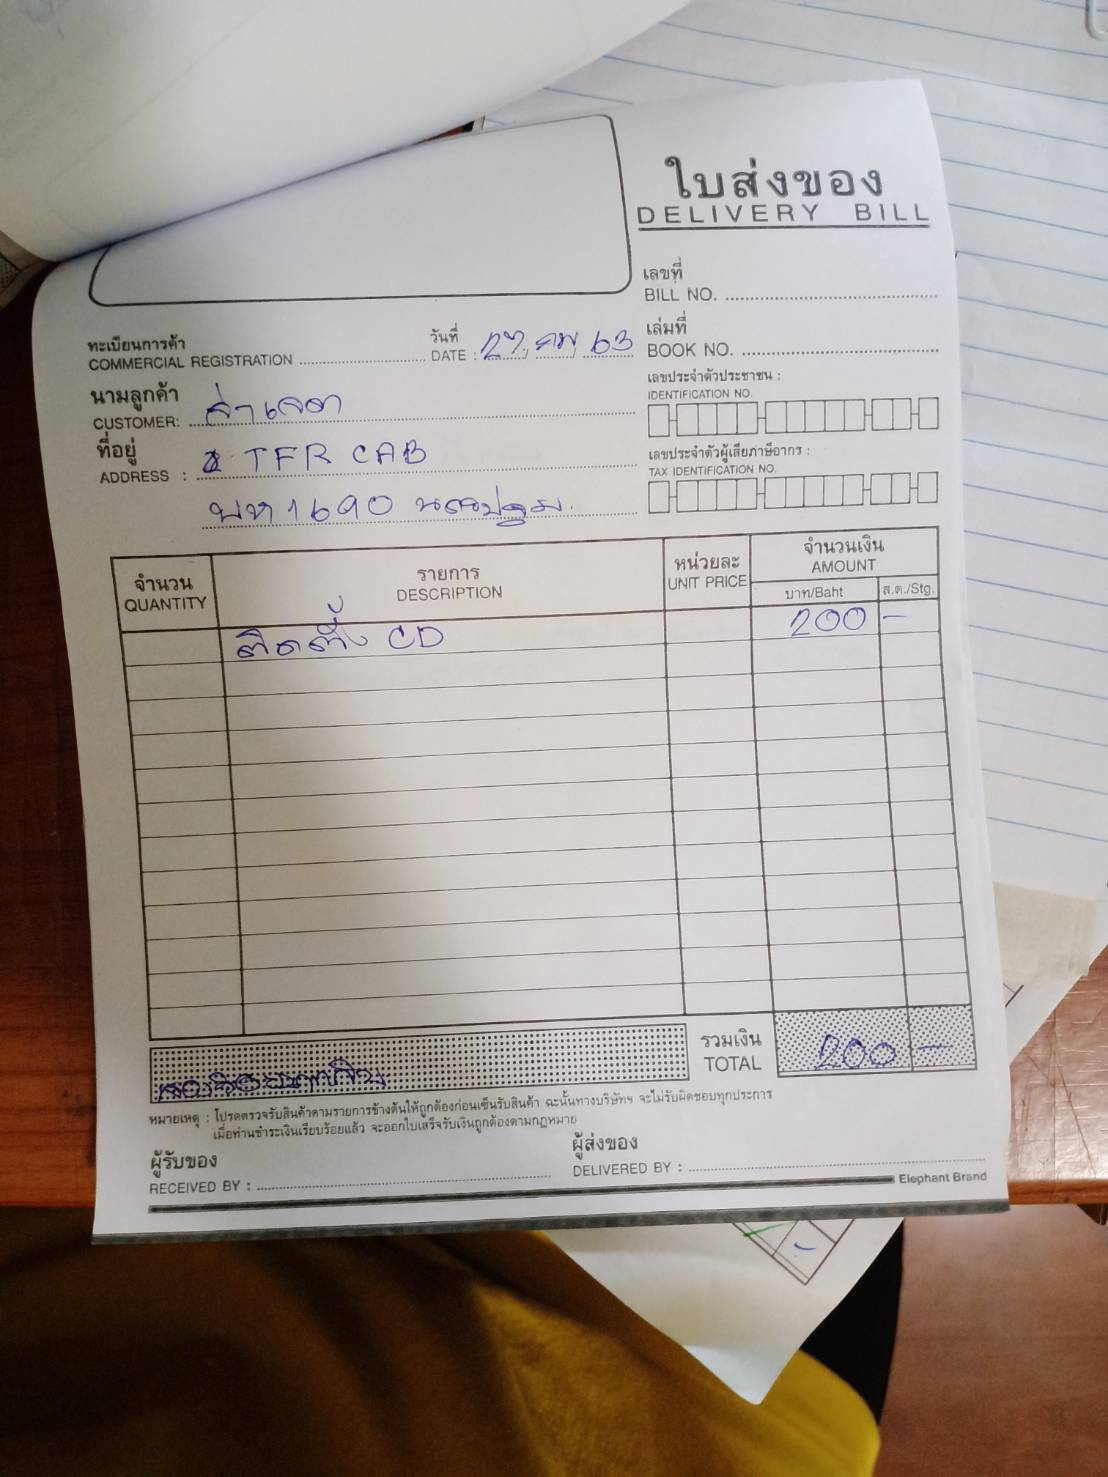 ใบส่งของ
DELIVERY BILL
เลขที่
BILL NO.
ทะเบียนการค้า
COMMERCIAL REGISTRATION
วันที่
DATE : 27, กพ, 63
เล่มที่
BOOK NO.
นามลูกค้า
CUSTOMER:
เลขประจำตัวประชาชน :
IDENTIFICATION NO.
ที่อยู่
ADDRESS : TFR CAB
เลขประจำตัวผู้เสียภาษีอากร :
TAX IDENTIFICATION NO.
1690 นครปฐม.
จำนวน
QUANTITY
รายการ
DESCRIPTION
หน่วยละ
UNIT PRICE
จำนวนเงิน
AMOUNT
บาท/Baht
ส.ต./Stg.
ติดตั้ง CD 200 -
รวมเงิน
TOTAL 200 -
หมายเหตุ : โปรดตรวจรับสินค้าตามรายการข้างต้นให้ถูกต้องก่อนเซ็นรับสินค้า ฉะนั้นทางบริษัทฯ จะไม่รับผิดชอบทุกประการ
เมื่อท่านชำระเงินเรียบร้อยแล้ว จะออกใบเสร็จรับเงินถูกต้องตามกฎหมาย
ผู้รับของ
RECEIVED BY :
ผู้ส่งของ
DELIVERED BY :
Elephant Brand